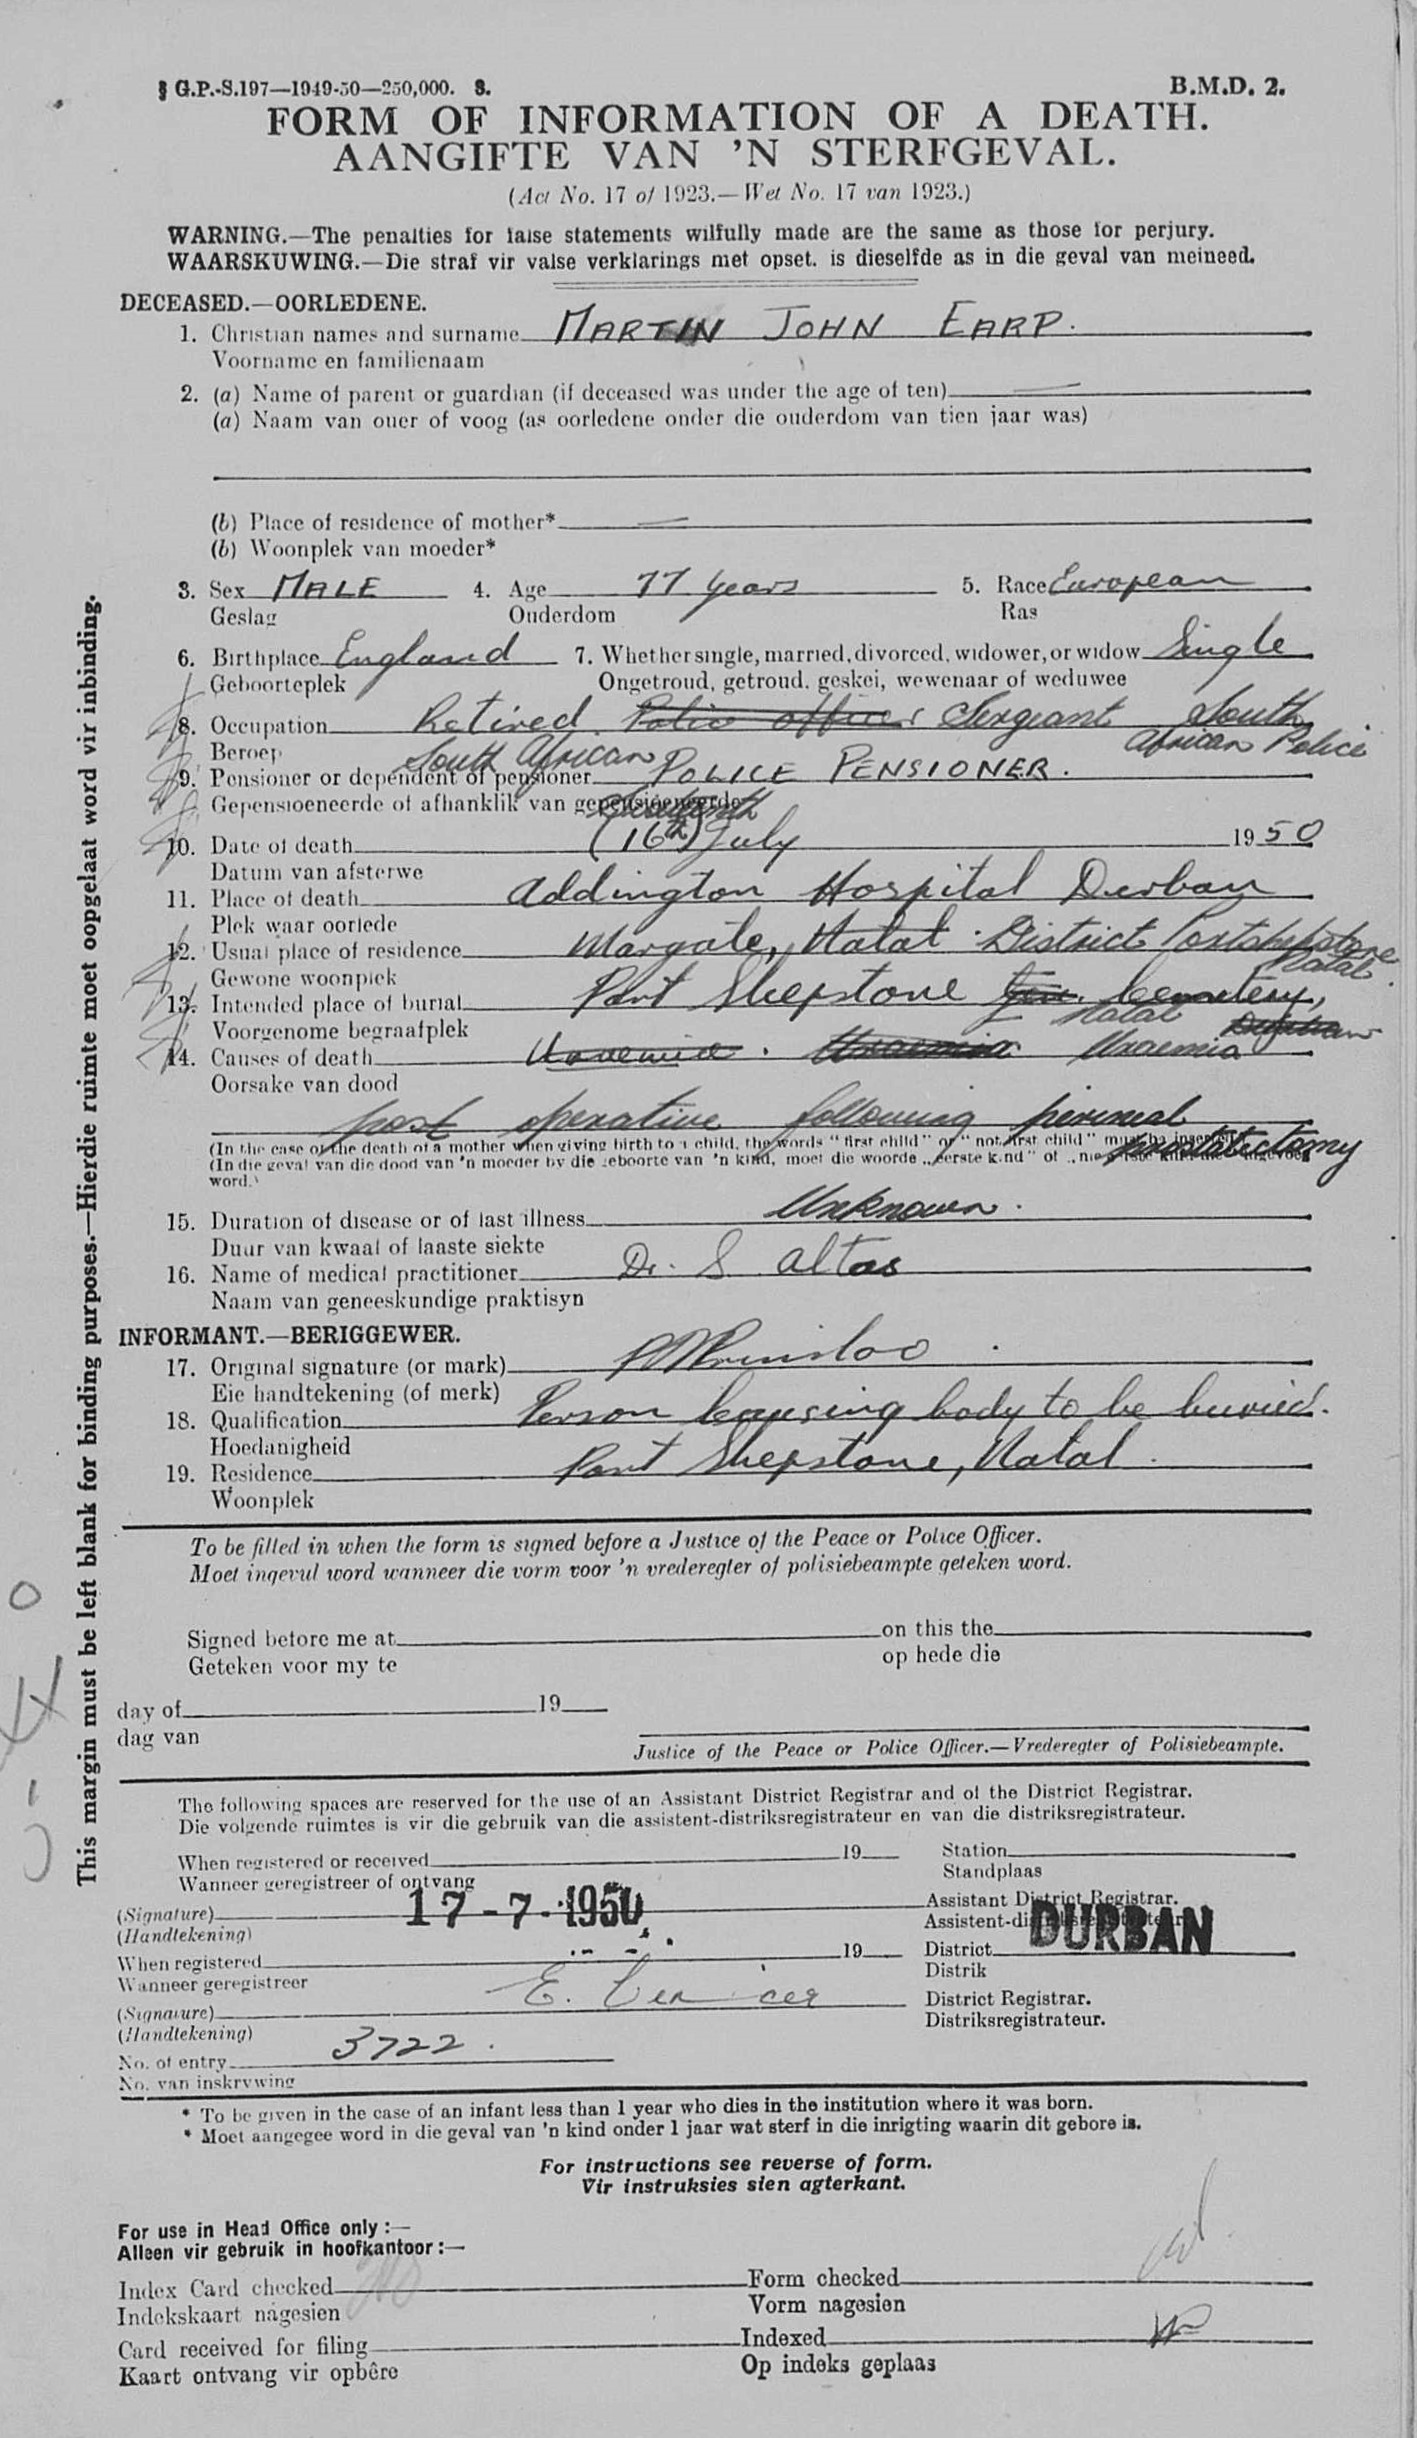 § G.P.-S.197—1949-50—250,000. S.
B.M.D. 2.
FORM OF INFORMATION OF A DEATH.
AANGIFTE VAN 'N STERFGEVAL.
(Act No. 17 of 1923.—Wet No. 17 van 1923.)
WARNING.—The penalties for false statements wilfully made are the same as those for perjury.
WAARSKUWING.—Die straf vir valse verklarings met opset. is dieselfde as in die geval van meineed.
DECEASED.—OORLEDENE.
1. Christian names and surname MARTIN JOHN EARP.
Voorname en familienaam
2. (a) Name of parent or guardian (if deceased was under the age of ten) —
(a) Naam van ouer of voog (as oorledene onder die ouderdom van tien jaar was)
(b) Place of residence of mother* —
(b) Woonplek van moeder*
3. Sex MALE 4. Age 77 years 5. Race European
Geslag Ouderdom Ras
6. Birthplace England 7. Whether single, married, divorced, widower, or widow Single
Geboorteplek Ongetroud, getroud, geskei, wewenaar of weduwee
8. Occupation Retired Police officer Sergeant South
Beroep African Police
South African
9. Pensioner or dependent of pensioner POLICE PENSIONER.
Gepensioeneerde of afhanklik van gepensioeneerde
10. Date of death (16th) July 1950
Datum van afsterwe
11. Place of death Addington Hospital Durban
Plek waar oorlede
12. Usual place of residence Margate, Natal District Portshepstone
Natal.
Gewone woonplek
13. Intended place of burial Port Shepstone Cemetery,
Natal
Voorgenome begraafplek
14. Causes of death Uraemia Uraemia
Oorsake van dood
post operative following perineal
prostatectomy
(In the case of the death of a mother when giving birth to a child, the words "first child" or "not first child" must be inserted.)
(In die geval van die dood van 'n moeder by die geboorte van 'n kind, moet die woorde „eerste kind" of „nie eerste kind nie" ingevoeg
word.)
15. Duration of disease or of last illness Unknown.
Duur van kwaal of laaste siekte
16. Name of medical practitioner Dr. S Altas
Naam van geneeskundige praktisyn
INFORMANT.—BERIGGEWER.
17. Original signature (or mark) Prinsloo
Eie handtekening (of merk)
18. Qualification Person causing body to be buried.
Hoedanigheid
19. Residence Port Shepstone, Natal
Woonplek
To be filled in when the form is signed before a Justice of the Peace or Police Officer.
Moet ingevul word wanneer die vorm voor 'n vrederegter of polisiebeampte geteken word.
Signed before me at on this the
Geteken voor my te op hede die
day of 19
dag van
Justice of the Peace or Police Officer.—Vrederegter of Polisiebeampte.
The following spaces are reserved for the use of an Assistant District Registrar and of the District Registrar.
Die volgende ruimtes is vir die gebruik van die assistent-distriksregistrateur en van die distriksregistrateur.
When registered or received 19 Station
Wanneer geregistreer of ontvang Standplaas
(Signature) 17-7-1950 Assistant District Registrar.
(Handtekening) Assistent-distriksregistrateur.
When registered 19 District DURBAN
Wanneer geregistreer Distrik
(Signature) E. District Registrar.
(Handtekening) Distriksregistrateur.
No. of entry 3722.
No. van inskrywing
* To be given in the case of an infant less than 1 year who dies in the institution where it was born.
* Moet aangegee word in die geval van 'n kind onder 1 jaar wat sterf in die inrigting waarin dit gebore is.
For instructions see reverse of form.
Vir instruksies sien agterkant.
For use in Head Office only :—
Alleen vir gebruik in hoofkantoor :—
Index Card checked Form checked
Indekskaart nagesien Vorm nagesien
Card received for filing Indexed
Kaart ontvang vir opbêre Op indeks geplaas
This margin must be left blank for binding purposes.—Hierdie ruimte moet oopgelaat word vir inbinding.